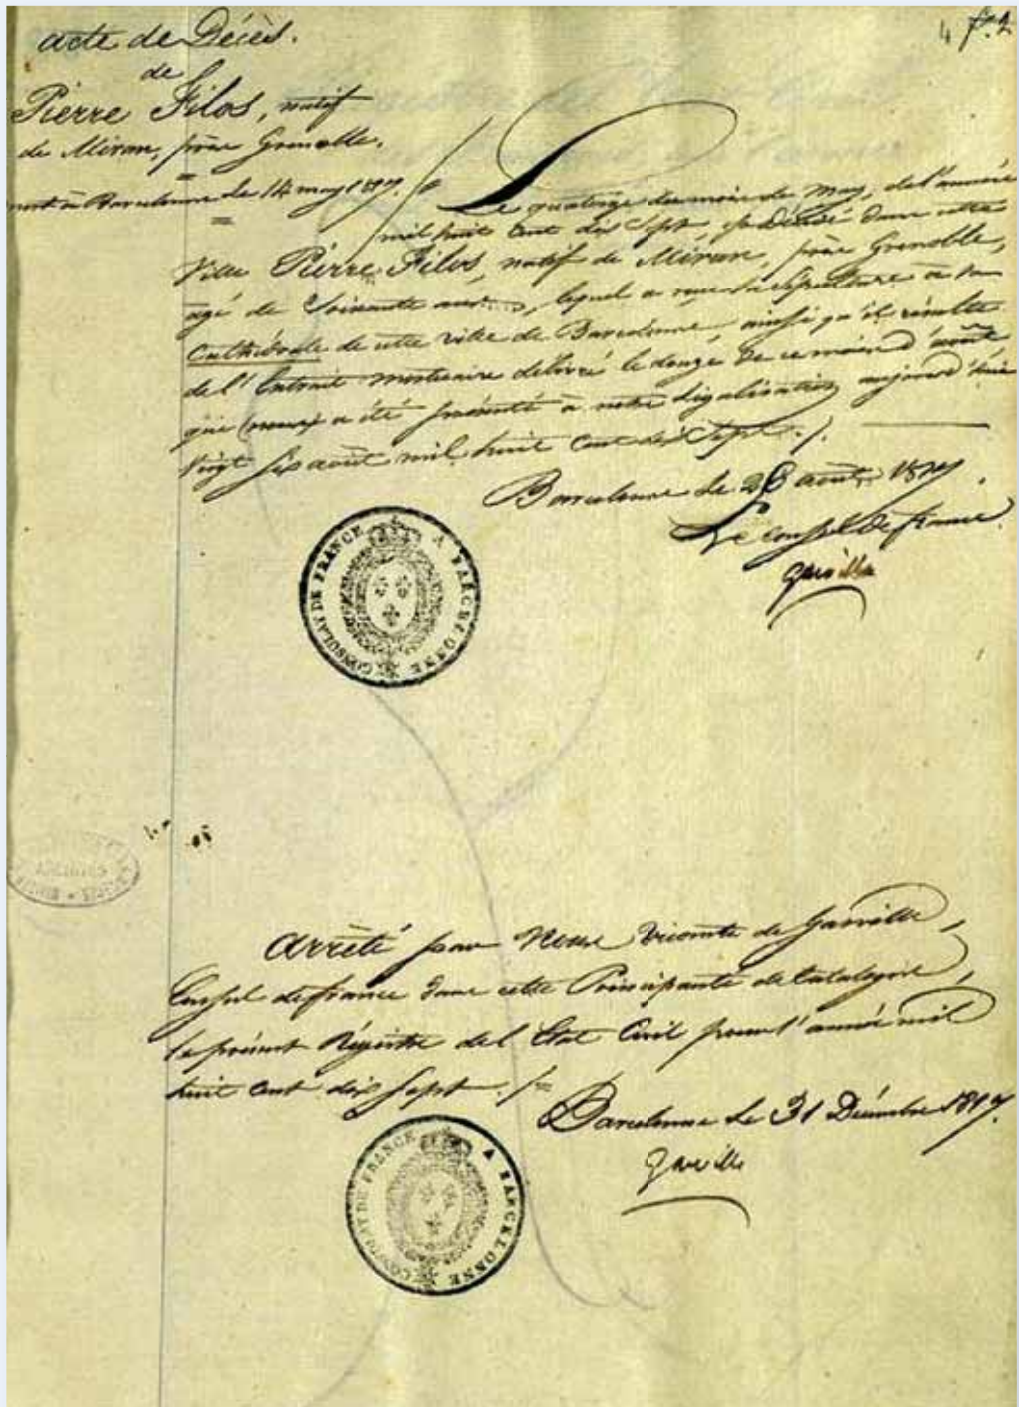 4 fo. 2
acte de Décès.
de
Pierre Filos, natif
de Miran, près Grenoble.
mort à Barcelonne le 14 may 1817.
Le quatorze du mois de May, de l'année
mil huit Cent dix Sept, est Décédé dans cette
Ville Pierre Filos, natif de Miran, près Grenoble,
agé de Soixante ans, lequel a reçu la sépulture à la
Cathédrale de cette ville de Barcelonne, ainsi qu'il résulte
de l'Extrait mortuaire délivré le douze de ce mois d'août
qui nous a été présenté à notre Légalisation aujourd'hui
Vingt six août mil huit Cent dix Sept ./.
Barcelonne le 26 août 1817.
Le Consul de france
Gasville
CONSULAT DE FRANCE A BARCELONNE
ARCHIVES
Arrêté par Nous Vicomte de Gasville,
Consul de france dans cette Principauté de Catalogne,
le présent Régistre de l'Etat Civil pour l'année mil
huit Cent dix Sept ./.
Barcelonne le 31 Décembre 1817.
Gasville
CONSULAT DE FRANCE A BARCELONNE